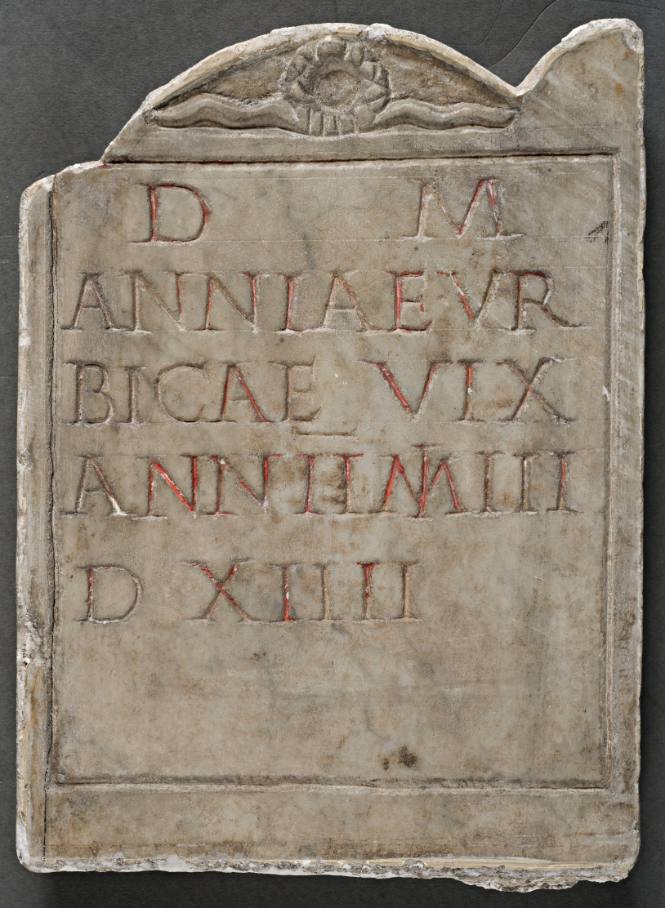 D M
ANNIAE VR
BICAE VIX
ANN II M III
D XIIII